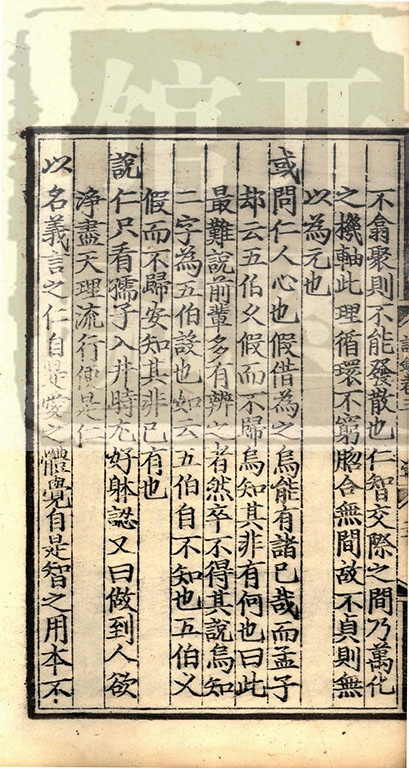 不翕聚則不能發散也仁智交際之間乃萬化
之機軸此理循環不窮脗合無間故不貞則無
以為元也
或問仁人心也假借為之烏能有諸己哉而孟子
却云五伯久假而不歸烏知其非有何也曰此
最難說前輩多有辨之者然卒不得其說烏知
二字為五伯設也如云五伯自不知也五伯乂
假而不歸安知其非已有也
說仁只看孺子入井時尤好躰認又曰做到人欲
浄盡天理流行便是仁
以名義言之仁自是愛之體覺自是智之用本不